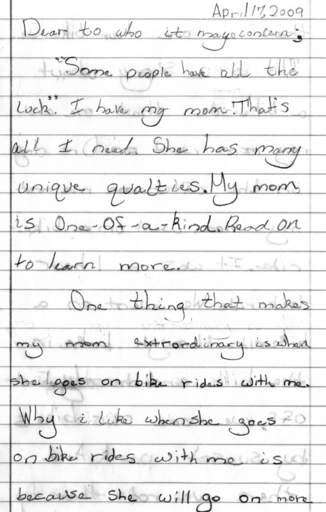 April 17, 2009
Dear to who it may concern;
"Some people have all the
Luck" I have my mom. That's
all I need. She has many
unique qualties. My mom
is One-Of-a-kind. Read on
to learn more.
One thing that makes
my mom extrordinary is when
she goes on bike rides with me.
Why i Like when she goes
on bike rides with me is
because she will go on more